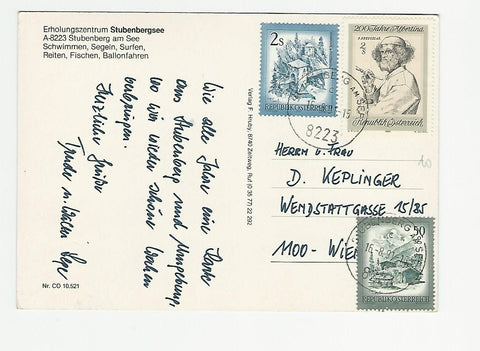 Erholungszentrum Stubenbergsee
A-8223 Stubenberg am See
Schwimmen, Segeln, Surfen,
Reiten, Fischen, Ballonfahren
Wie alle Jahre eine Karte
aus Stubenberg und Umgebung,
wo wir wieder schöne Wochen
verbringen.
Herzliche Grüße
Nr. CO 10.521
Verlag F. Hruby, 8740 Zeltweg, Ruf (0 35 77) 22 292
2s
REPUBLIK ÖSTERREICH
200 Jahre Albertina
Republik Österreich
8223
HERRN U. FRAU
D. KEPLINGER
WENDSTATTGASSE 15/85
1100 - WIEN
50
REPUBLIK ÖSTERREICH